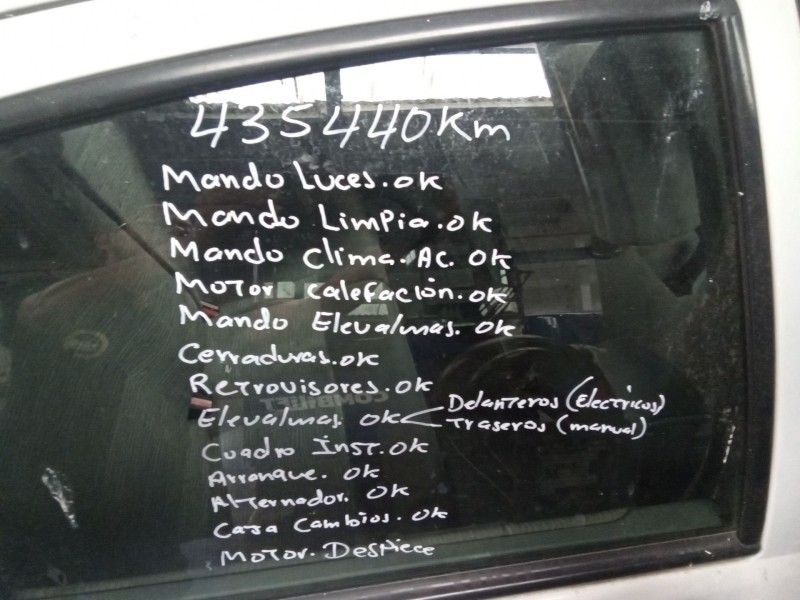 435440Km
Mando Luces. ok
Mando Limpia. ok
Mando clima. AC. ok
Motor calefación. ok
Mando Elevalmas. ok
Cerraduras. ok
Retrovisores. ok
Elevalmas. ok Delanteros (Electricos)
Traseros (manual)
Cuadro Inst. ok
Arranque. ok
Alternador. ok
Caja Cambios. ok
Motor. Despiece